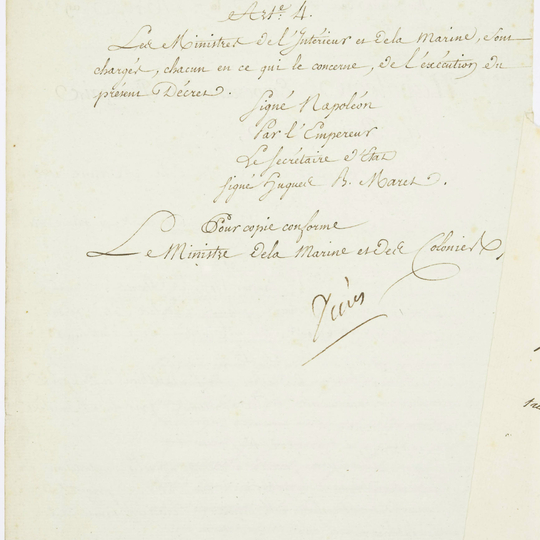 Art. 4.
Les Ministres de l'Intérieur et de la Marine, sont
chargés, chacun en ce qui le concerne, de l'exécution du
présent Décret.
signé Napoléon
Par l'Empereur
Le Secrétaire d'Etat
signé Hugues B. Maret.
Pour copie conforme
Le Ministre de la Marine et des Colonies,